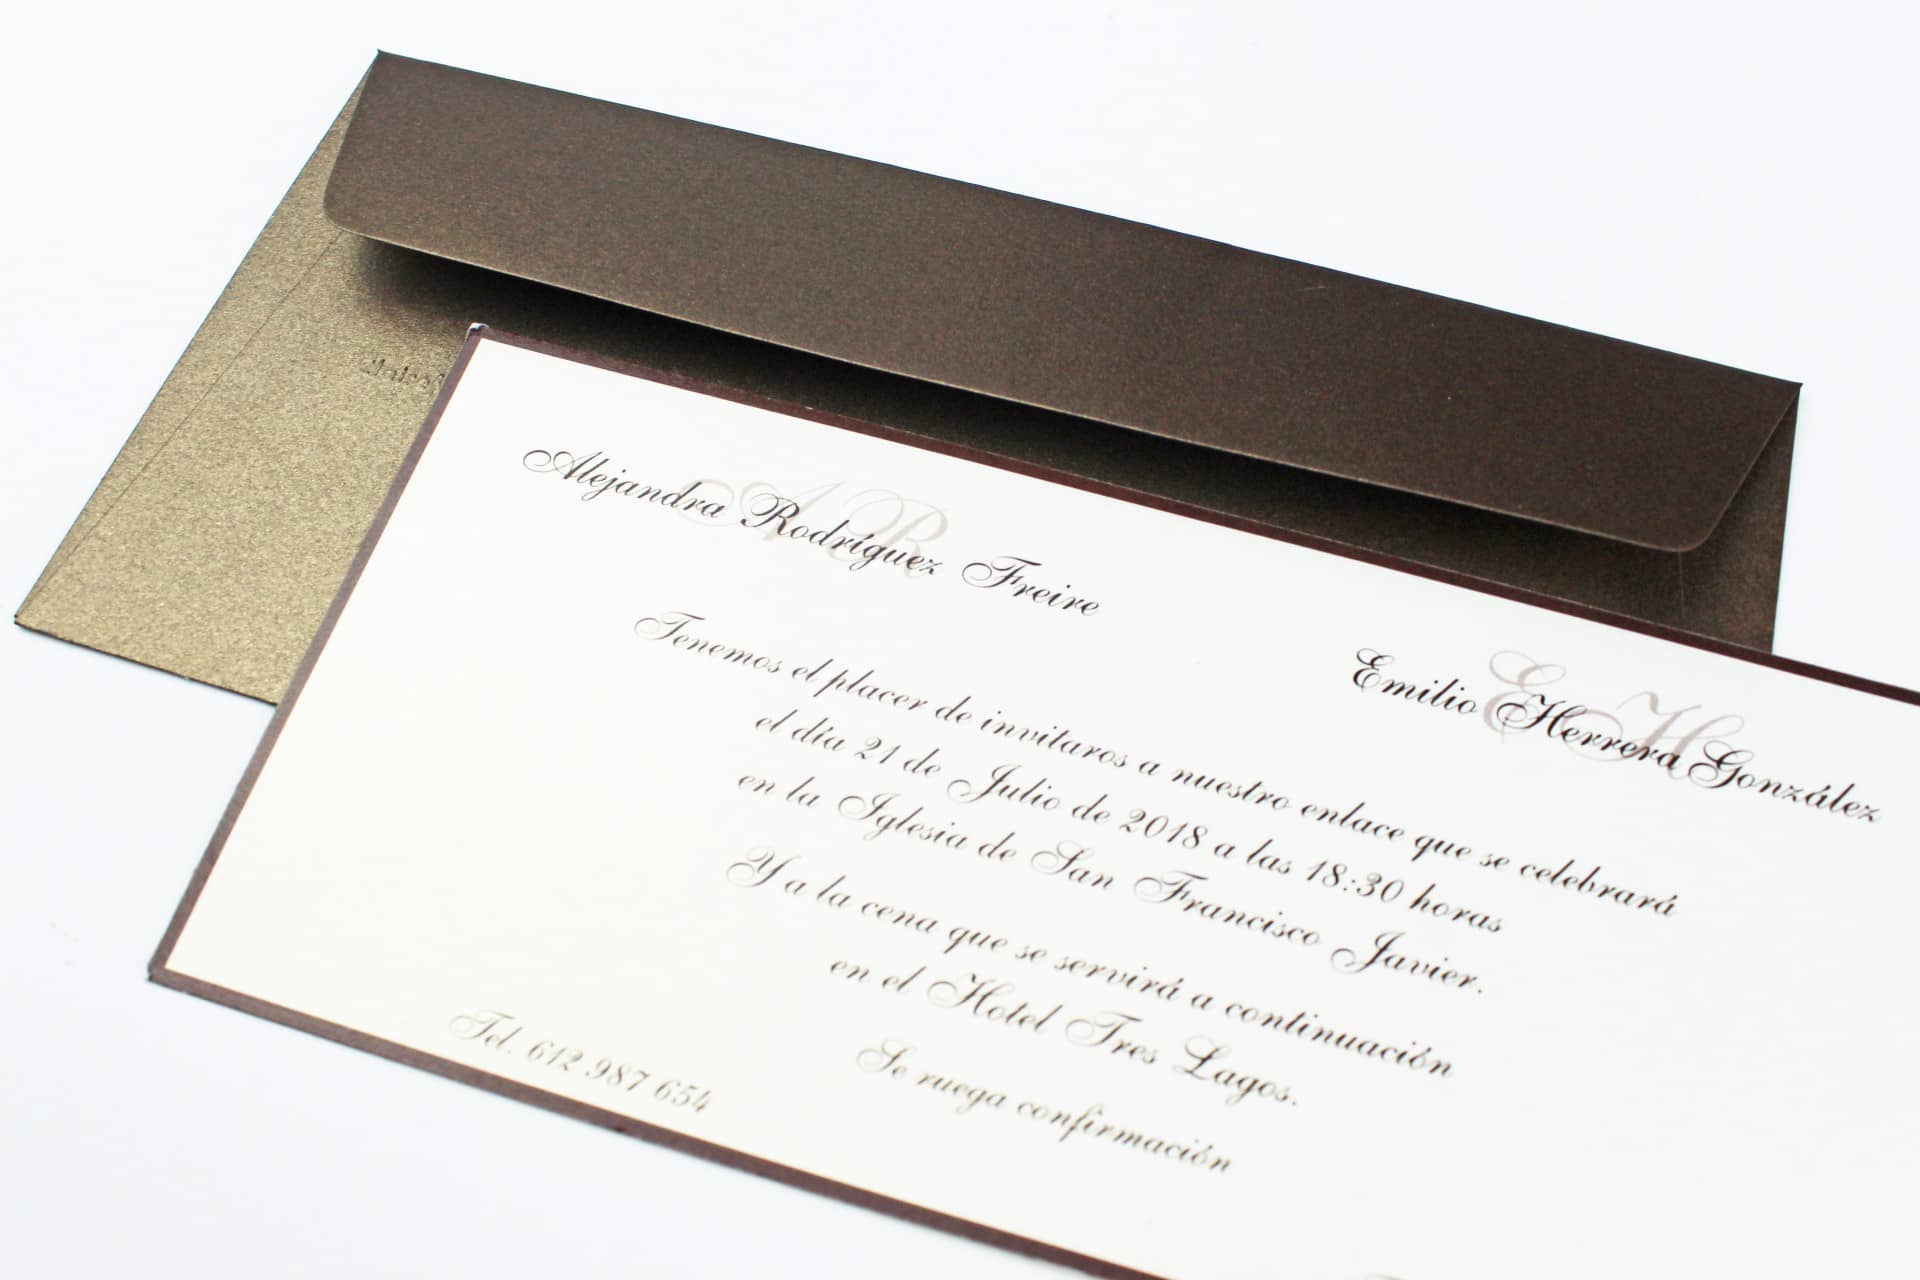 A R
Alejandra Rodríguez Freire
E H
Emilio Herrera González
Tenemos el placer de invitaros a nuestro enlace que se celebrará
el día 21 de Julio de 2018 a las 18:30 horas
en la Iglesia de San Francisco Javier.
Y a la cena que se servirá a continuación
en el Hotel Tres Lagos.
Se ruega confirmación
Tel. 612 987 654